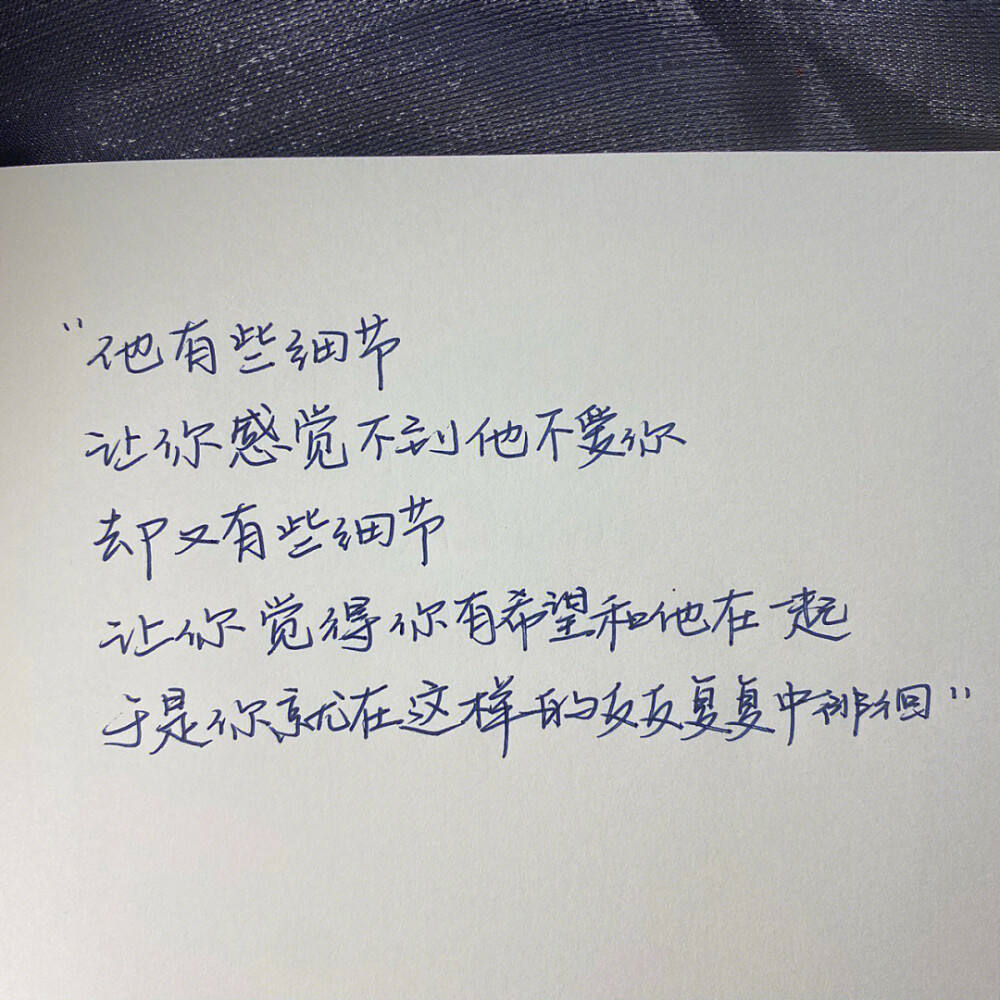 “他有些细节
让你感觉不到他不爱你
却又有些细节
让你觉得你有希望和他在一起
于是你就在这样的反反复复中徘徊”